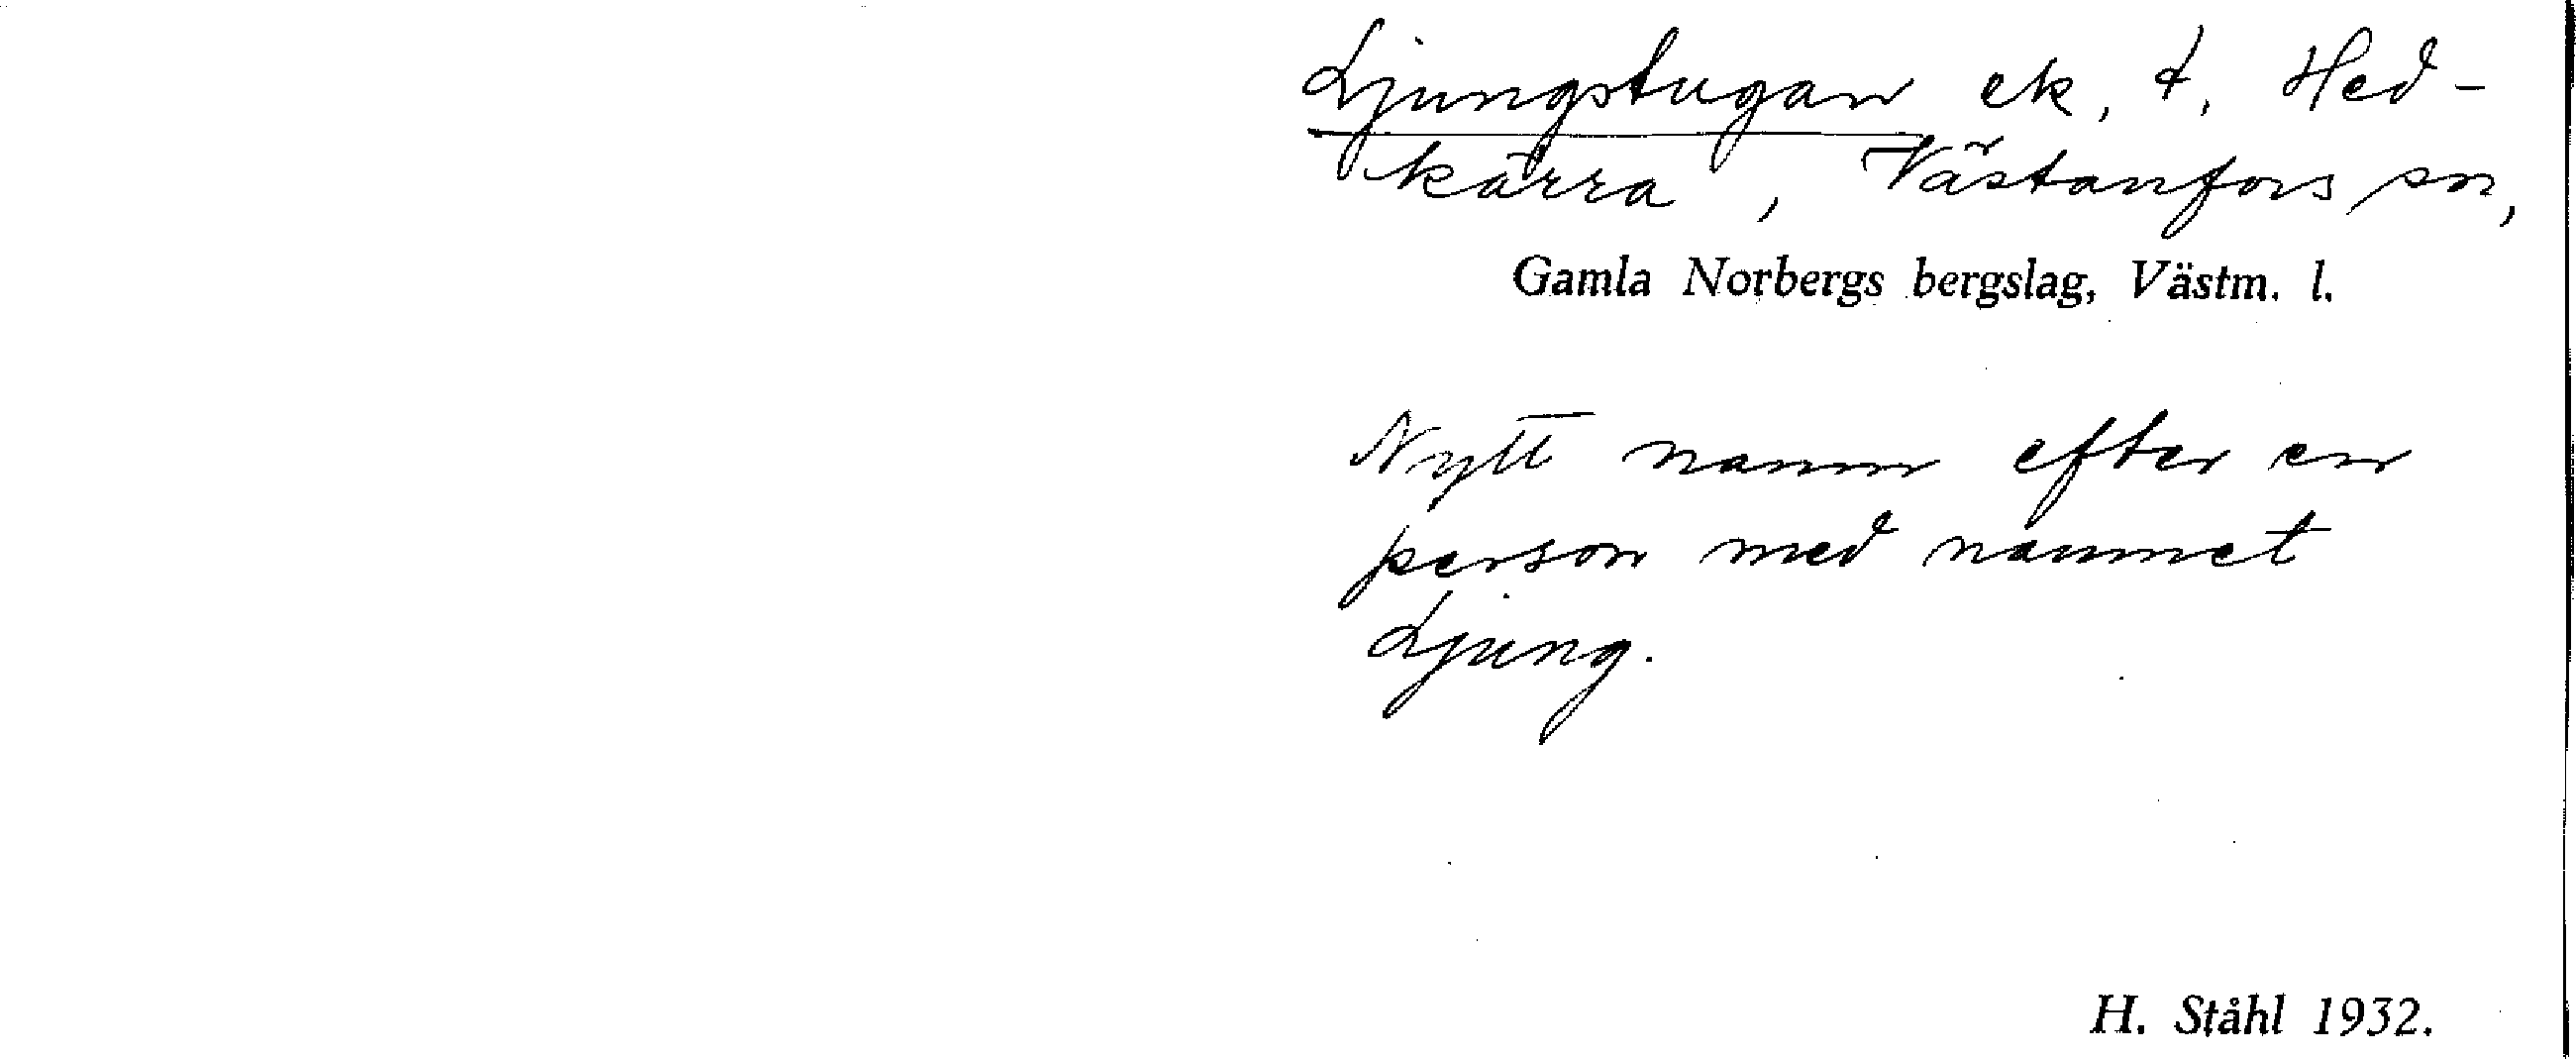 Ljungstugan ek, t, Hed-
kärra, Västanfors sn,
Gamla Norbergs bergslag, Västm. l.
Nytt namn efter en
person med namnet
Ljung.
H. Ståhl 1932.